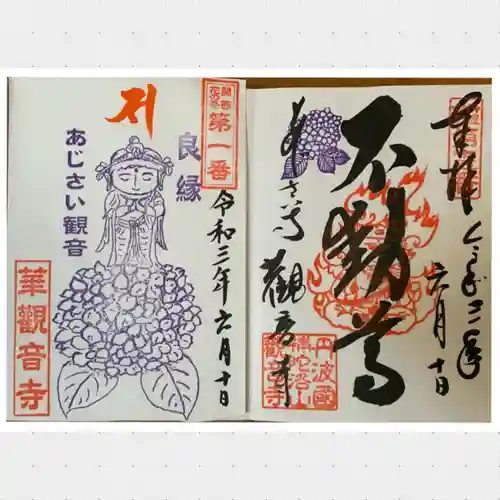 奉拝 令和三年
六月十日
不動尊
あじさい寺
觀音寺
丹波國
觀音寺
関西
花の寺
第一番
良縁
令和三年六月十日
あじさい観音
華觀音寺